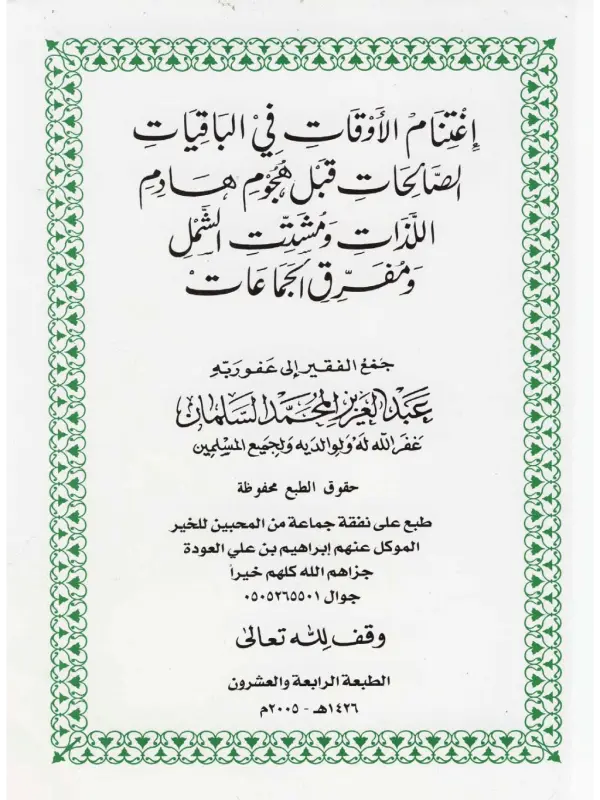 إِغْتِنَامُ الأَوْقَاتِ فِيْ البَاقِيَاتِ
الصَّالِحَاتِ قَبْلَ هُجُوْمِ هَادِمِ
اللَّذَّاتِ وَمُشَتِّتِ الشَّمْلِ
وَمُفَرِّقِ الجَمَاعَاتْ
جَمْعُ الفقير إلى عَفو رَبّهِ
عَبْد العَزيز المُحمَّد السَّلمان
غفَر الله لهُ ولوالديه ولجميع المسْلمين
حقوق الطبع محفوظة
طبع على نفقة جماعة من المحبين للخير
الموكل عنهم إبراهيم بن علي العودة
جزاهم الله كلهم خيراً
جوال ٠٥٠٥٢٦٥٥٠١
وقف لِلّٰه تعالىٰ
الطبعة الرابعة والعشرون
١٤٢٦هـ - ٢٠٠٥م